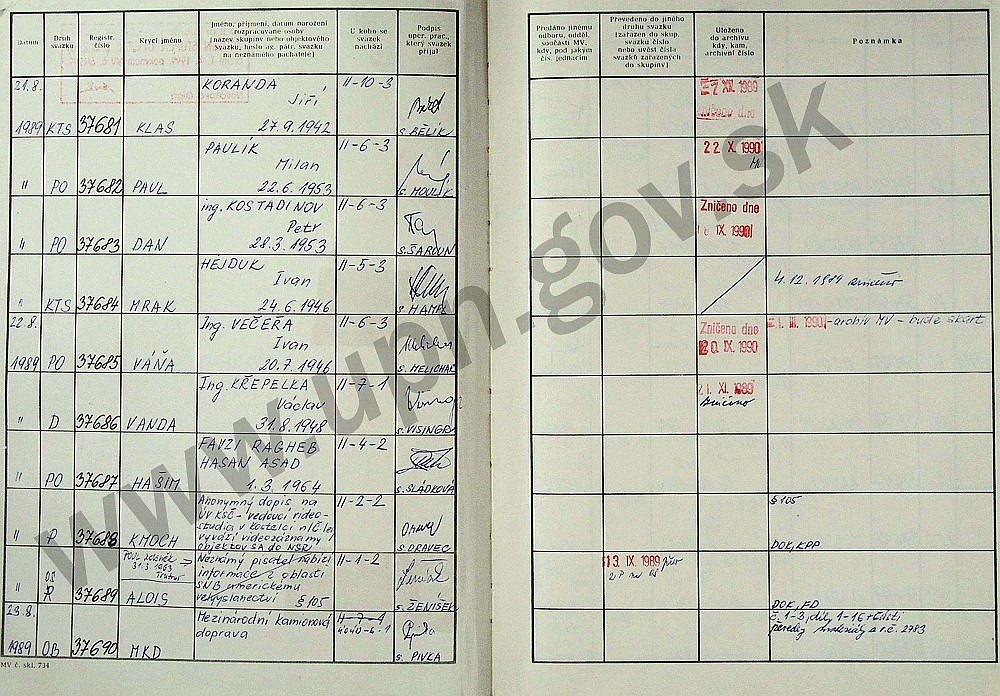 Datum
Druh svazku
Registr. číslo
Krycí jméno
Jméno, příjmení, datum narození rozpracované osoby
[název skupiny nebo objektového svazku, heslo ag. pátr. svazku na neznámého pachatele]
U koho se svazek nachází
Podpis oper. prac., který svazek přijal
Předáno jinému odboru, odděl. součásti MV, kdy, pod jakým čís. jednacím
Převedeno do jiného druhu svazku [zařazen do skup. svazku číslo nebo uvést čísla svazků zařazených do skupiny]
Uloženo do archivu kdy, kam, archivní číslo
Poznámka
21.8. 1989 KTS 37681 KLAS KORANDA Jiří 27.9.1942 II-10-3 s. BĚLÍK
XII 1989
Zničeno dne
" PO 37682 PAUL PAULÍK Milan 22.6.1953 II-6-3 s. MOULÍK
22 X. 1990
" PO 37683 DAN ing. KOSTADINOV Petr 28.3.1953 II-6-3 s. ŠAROUN
Zničeno dne
IX. 1990
" KTS 37684 MRAK HEJDUK Ivan 24.6.1946 II-5-3 s. HAMPL
4.12.1989
22.8. 1989 PO 37685 VÁŇA Ing. VEČEŘA Ivan 20.7.1946 II-6-3 s. MELICHAR
Zničeno dne
20. IX. 1990
1. III. 1990 - archiv MV - bude skart
" D 37686 VANDA Ing. KŘEPELKA Václav 31.8.1948 II-7-1 s. VISINGR
21. XI. 1989
Zničeno
" PO 37687 HAŠIM FAVZI RAGHEB HASAN ASAD 1.3.1964 II-4-2 s. SLÁDKOVÁ
" P 37688 KMOCH Anonymný dopis na
ÚV KSČ - vedoucí video-
studia v Kostelci n/Č.les
vyváží videozáznamy
objektov SA do NSR
II-2-2 s. ORAVEC
§ 105
DOK, KPP
" OS 37689 ALOIS
31.3.1963
Trutnov
Neznámý pisatel nabízí
informace z oblasti
SNB americkému
velvyslanectví § 105
II-1-2 s. ŽENÍŠEK
13. IX. 1989
DOK, FD
23.8. 1989 OB 37690 MKD Mezinárodní kamionová
doprava
4040-6-1 s. PIVKA
č. 1-3, díly 1-16
MV č. skl. 734
www.upn.gov.sk